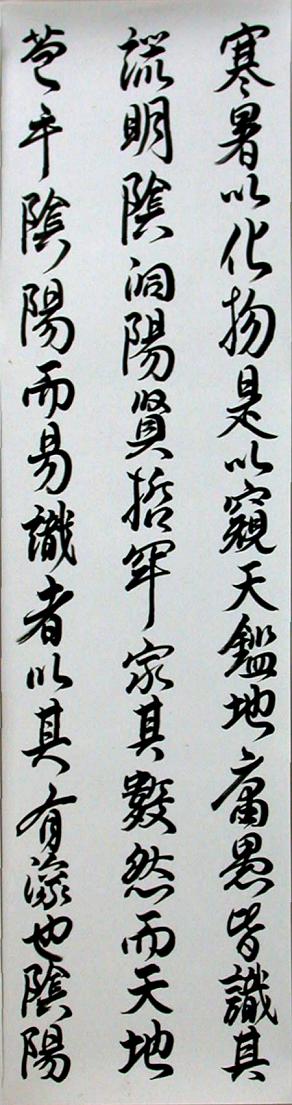 寒暑以化物是以窺天鑑地庸愚皆識其
端明陰洞陽賢哲罕窮其數然而天地
苞乎陰陽而易識者以其有像也陰陽